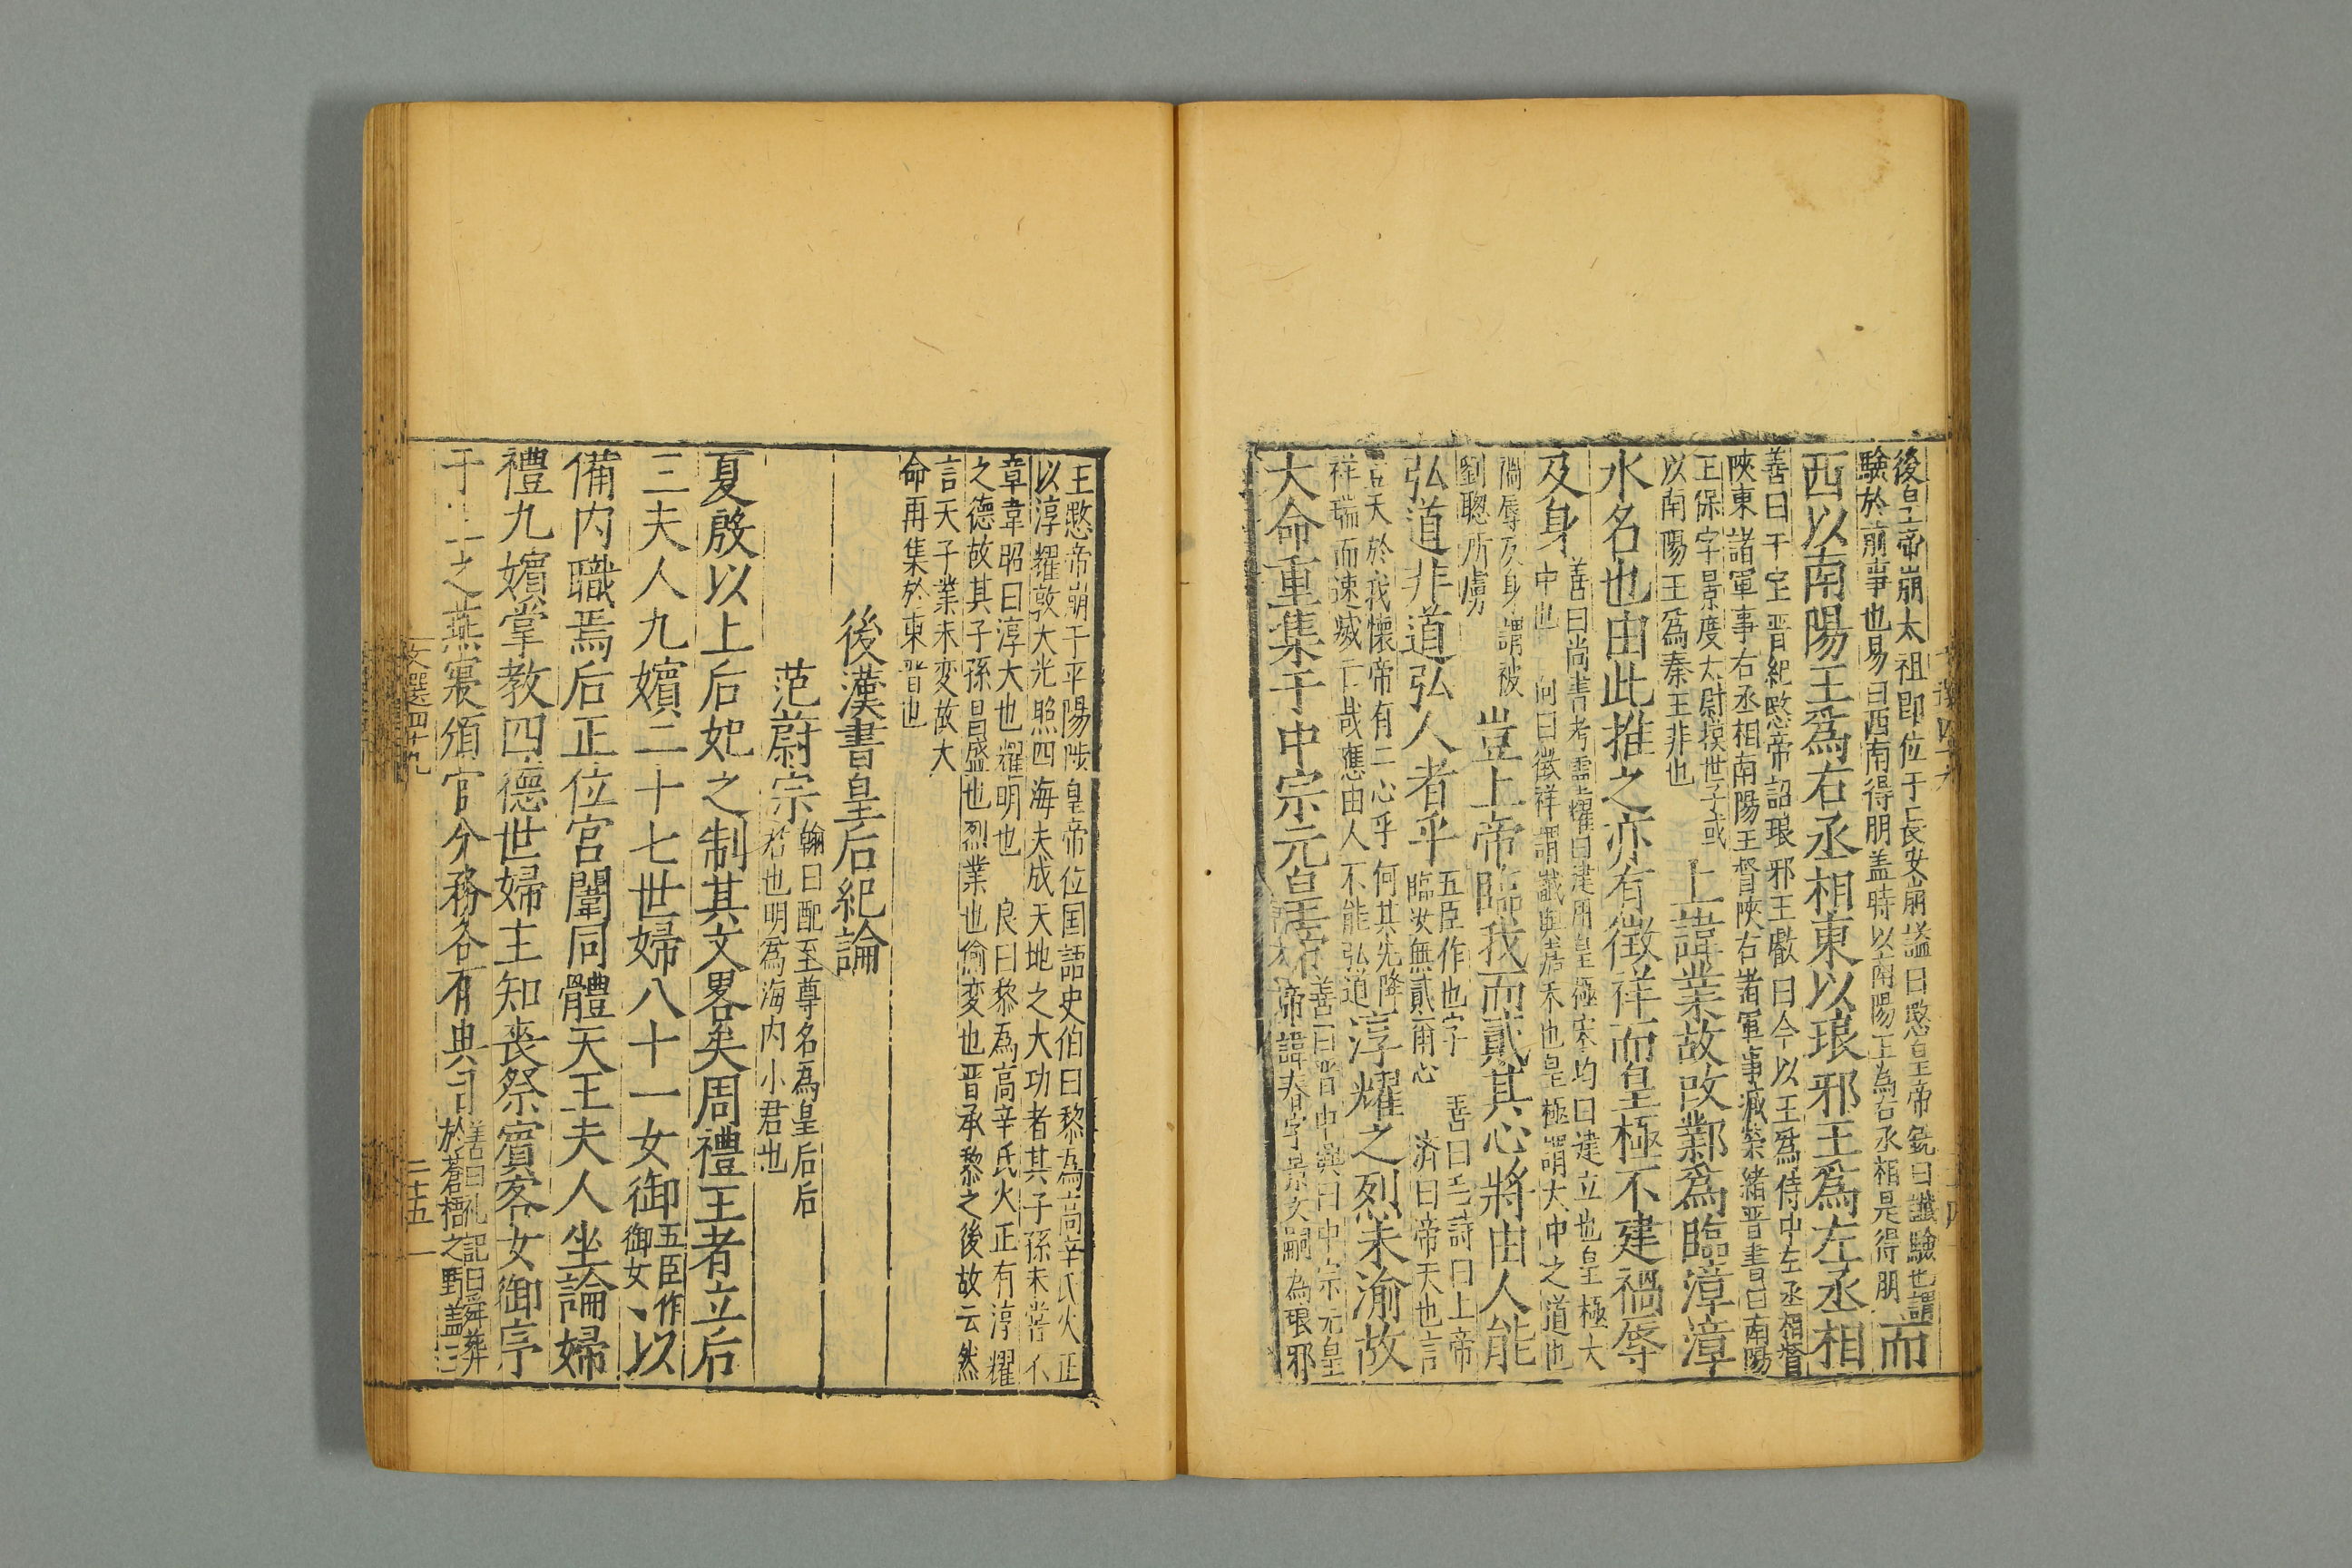 後皇帝崩太祖即位于長安崩諡曰愍皇帝銑曰讖驗也謂
驗於前事也易曰西南得朋蓋時以南陽王為右丞相是得朋
而
西以南陽王爲右丞相東以琅邪王爲左丞相
善曰干宝晋紀愍帝詔琅邪王叡曰今以王爲侍中左丞相督
陝東諸軍事右丞相南陽王督陝右諸軍事臧榮緒晋書曰南陽
王保字景度太尉模世子或
以南陽王爲秦王非也
上諱業故改鄴爲臨漳漳
水名也由此推之亦有徵祥而皇極不建禍辱
及身
善曰尚書考霊耀曰建用皇極宋均曰建立也皇極大
中也 向曰徵祥謂讖與嘉禾也皇極謂大中之道也
禍辱及身謂被
劉聦所虜
豈上帝臨我而貳其心將由人能
弘道非道弘人者乎
五臣作也字 善曰毛詩曰上帝
臨汝無貳爾心 済曰帝天也言
言天於我懷帝有二心乎何其先降
祥瑞而速滅亡哉應由人不能弘道
淳耀之烈未渝故
大命重集于中宗元皇帝
善曰晋中興曰中宗元皇
帝諱春字景文嗣為琅邪
王愍帝崩于平陽陟皇帝位国語史伯曰黎為高辛氏火正
以淳耀敦大光照四海夫成天地之大功者其子孫未甞不
章韋昭曰淳大也耀明也 良曰黎為高辛氏火正有淳耀
之德故其子孫昌盛也烈業也偷変也晋承黎之後故云然
言天子業未変故大
命再集於東晋也
後漢書皇后紀論
范蔚宗
翰曰配至尊名為皇后后
君也明為海内小君也
夏啟以上后妃之制其文畧矣周禮王者立后
三夫人九嬪二十七世婦八十一女御
五臣作
御女
以
備内職焉后正位宮闈同體天王夫人坐論婦
禮九嬪掌教四德世婦主知喪祭賓客女御序
于王之燕寢頒官分務各有典司
善曰礼記曰舜葬
於蒼梧之野蓋三
文選四十九
二十五